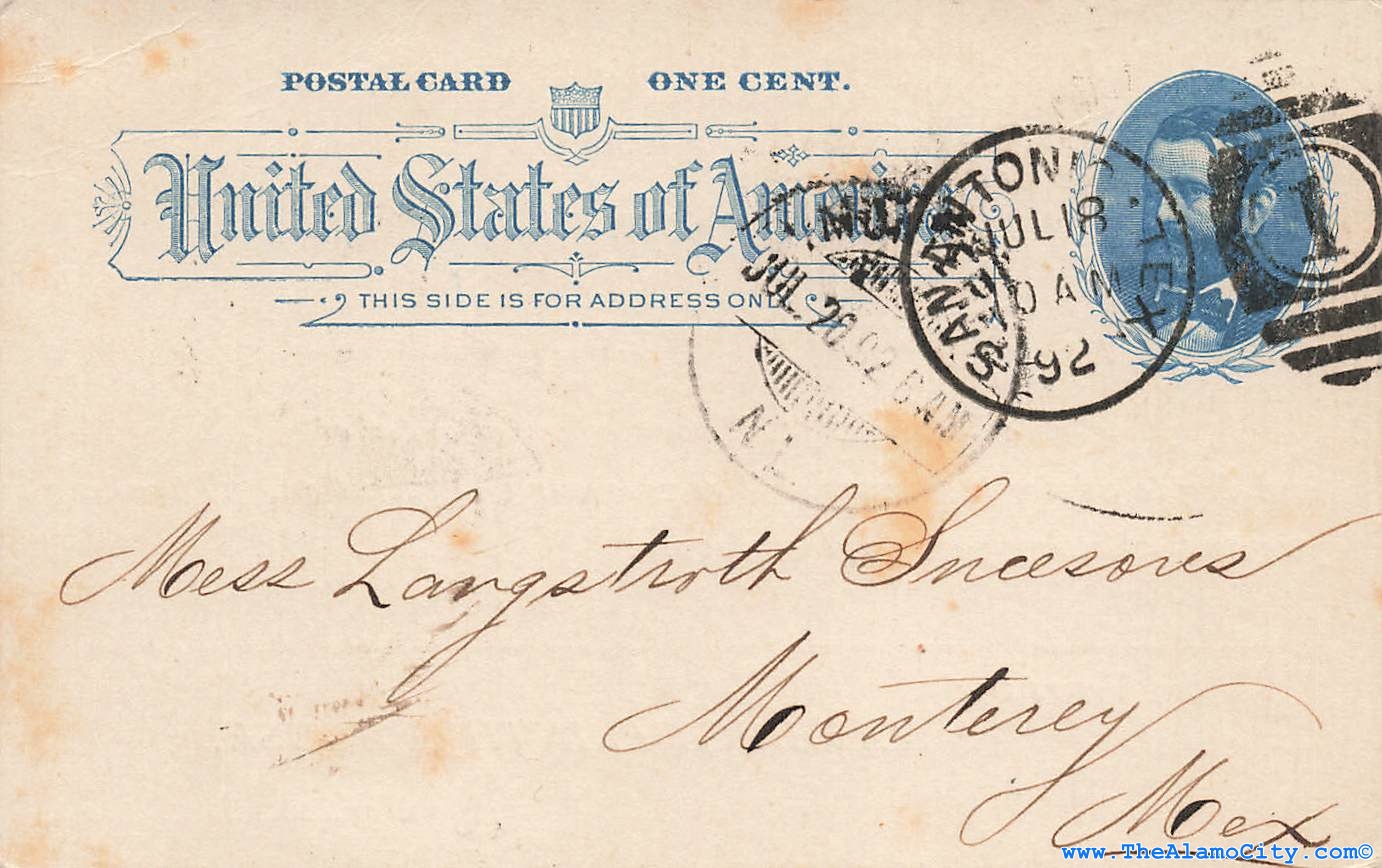 POSTAL CARD ONE CENT.
United States of America
THIS SIDE IS FOR ADDRESS ONLY.
SAN ANTONIO. TEX.
JUL 18
10 AM
92
1
JUL 20 92 6 AM
Mess Langstroth Sucesores
Monterey
Mex
www.TheAlamoCity.com©